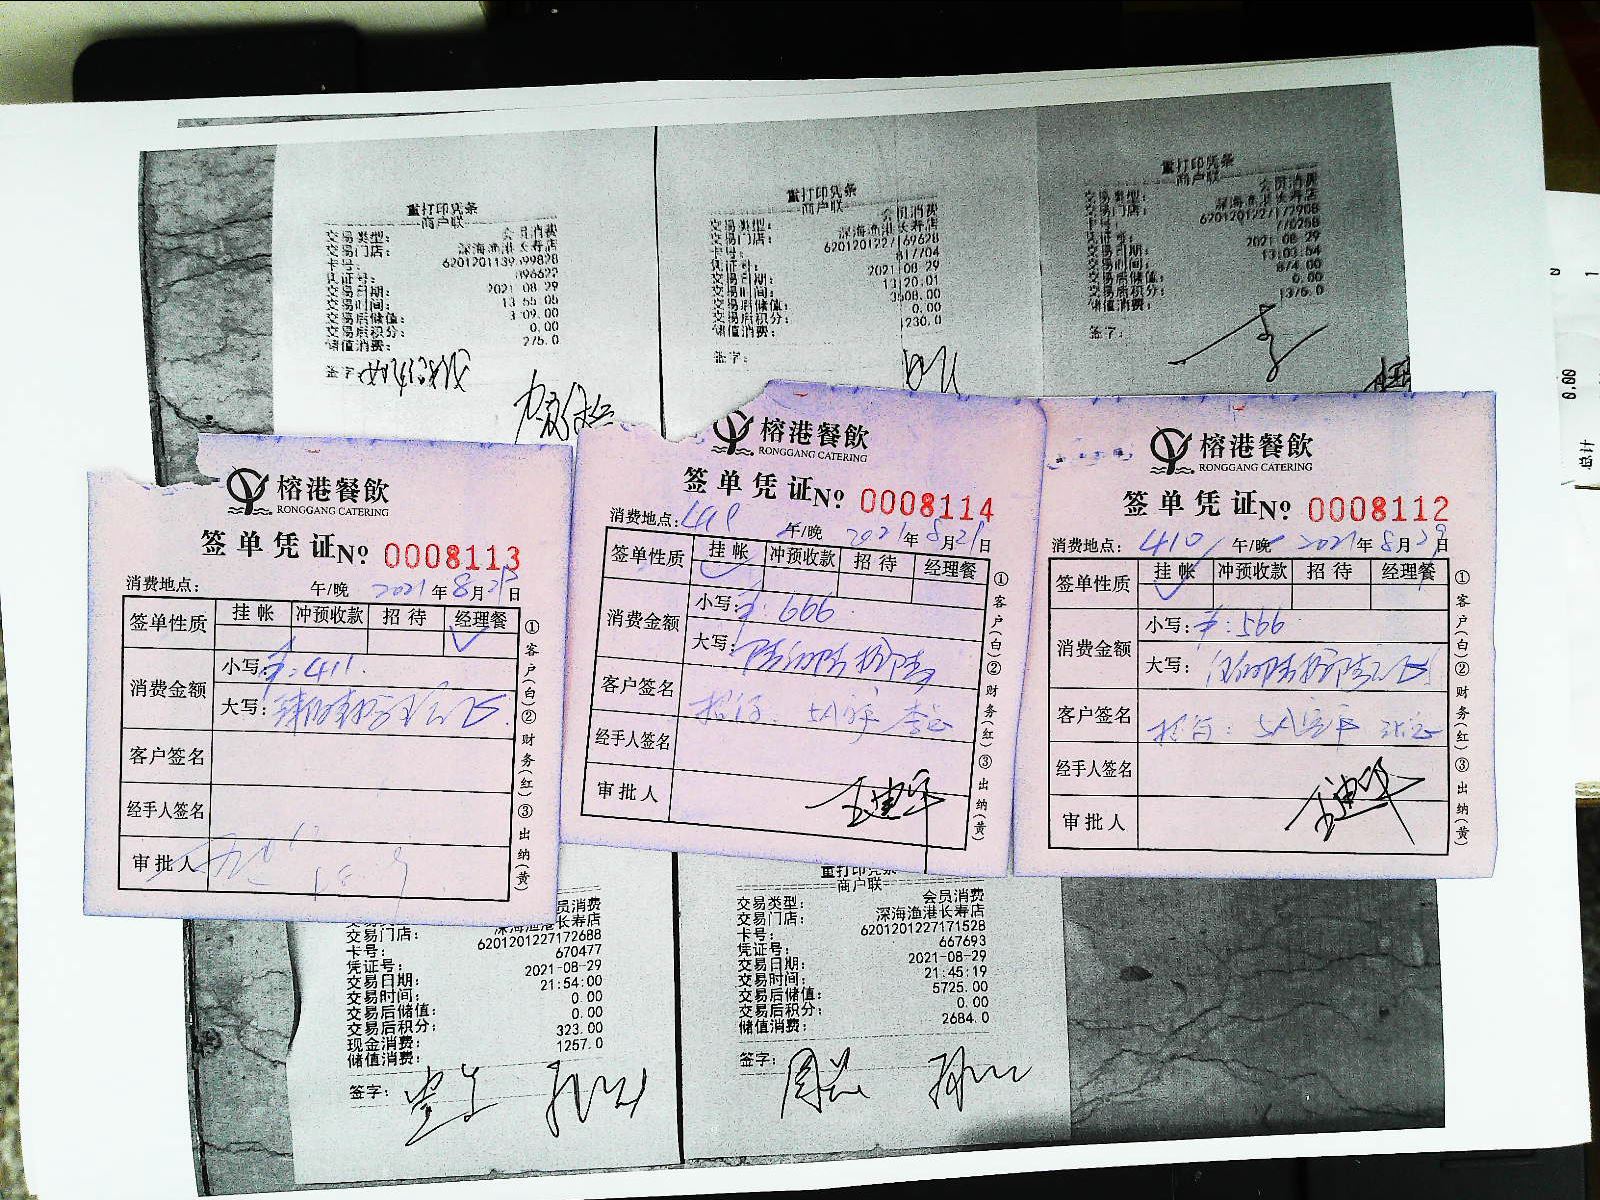 重打印凭条
商户联
交易类型: 会员消费
交易门店: 深海渔港长寿店
卡号:
凭证号: 096622
交易日期: 2021-08-29
交易时间: 13:55:05
交易后储值: 3109.00
交易后积分: 0.00
储值消费: 275.0
签字:
重打印凭条
商户联
交易类型: 会员消费
交易门店: 深海渔港长寿店
卡号: 6201201227169628
凭证号: 817704
交易日期: 2021-08-29
交易时间: 13:20:01
交易后储值: 3508.00
交易后积分: 0.00
储值消费: 230.0
签字:
重打印凭条
商户联
交易类型: 会员消费
交易门店: 深海渔港长寿店
卡号: 6201201227177908
凭证号: 770258
交易日期: 2021-08-29
交易时间: 13:03:54
交易后储值: 874.00
交易后积分: 0.00
储值消费: 1376.0
签字:
0.00
总计
榕港餐飲
RONGGANG CATERING
签单凭证 No 0008113
消费地点: 午/晚 2021年8月29日
签单性质 挂帐 冲预收款 招待 经理餐
消费金额 小写: ¥:411.
大写:
客户签名
经手人签名
审批人
①客户(白)②财务(红)③出纳(黄)
榕港餐飲
RONGGANG CATERING
签单凭证 No 0008114
消费地点: 午/晚 2021年8月29日
签单性质 挂帐 冲预收款 招待 经理餐
消费金额 小写: ¥:666
大写: 陆佰陆拾陆
客户签名 招待: 李总
经手人签名
审批人
①客户(白)②财务(红)③出纳(黄)
榕港餐飲
RONGGANG CATERING
签单凭证 No 0008112
消费地点: 410 午/晚 2021年8月29日
签单性质 挂帐 冲预收款 招待 经理餐
消费金额 小写: ¥:566
大写: 伍佰陆拾陆元
客户签名 招待:
经手人签名
审批人
①客户(白)②财务(红)③出纳(黄)
员消费
交易门店: 深海渔港长寿店
卡号: 6201201227172688
凭证号: 670477
交易日期: 2021-08-29
交易时间: 21:54:00
交易后储值: 0.00
交易后积分: 0.00
现金消费: 323.00
储值消费: 1257.0
签字:
重打印凭条
商户联
交易类型: 会员消费
交易门店: 深海渔港长寿店
卡号: 6201201227171528
凭证号: 667693
交易日期: 2021-08-29
交易时间: 21:45:19
交易后储值: 5725.00
交易后积分: 0.00
储值消费: 2684.0
签字: